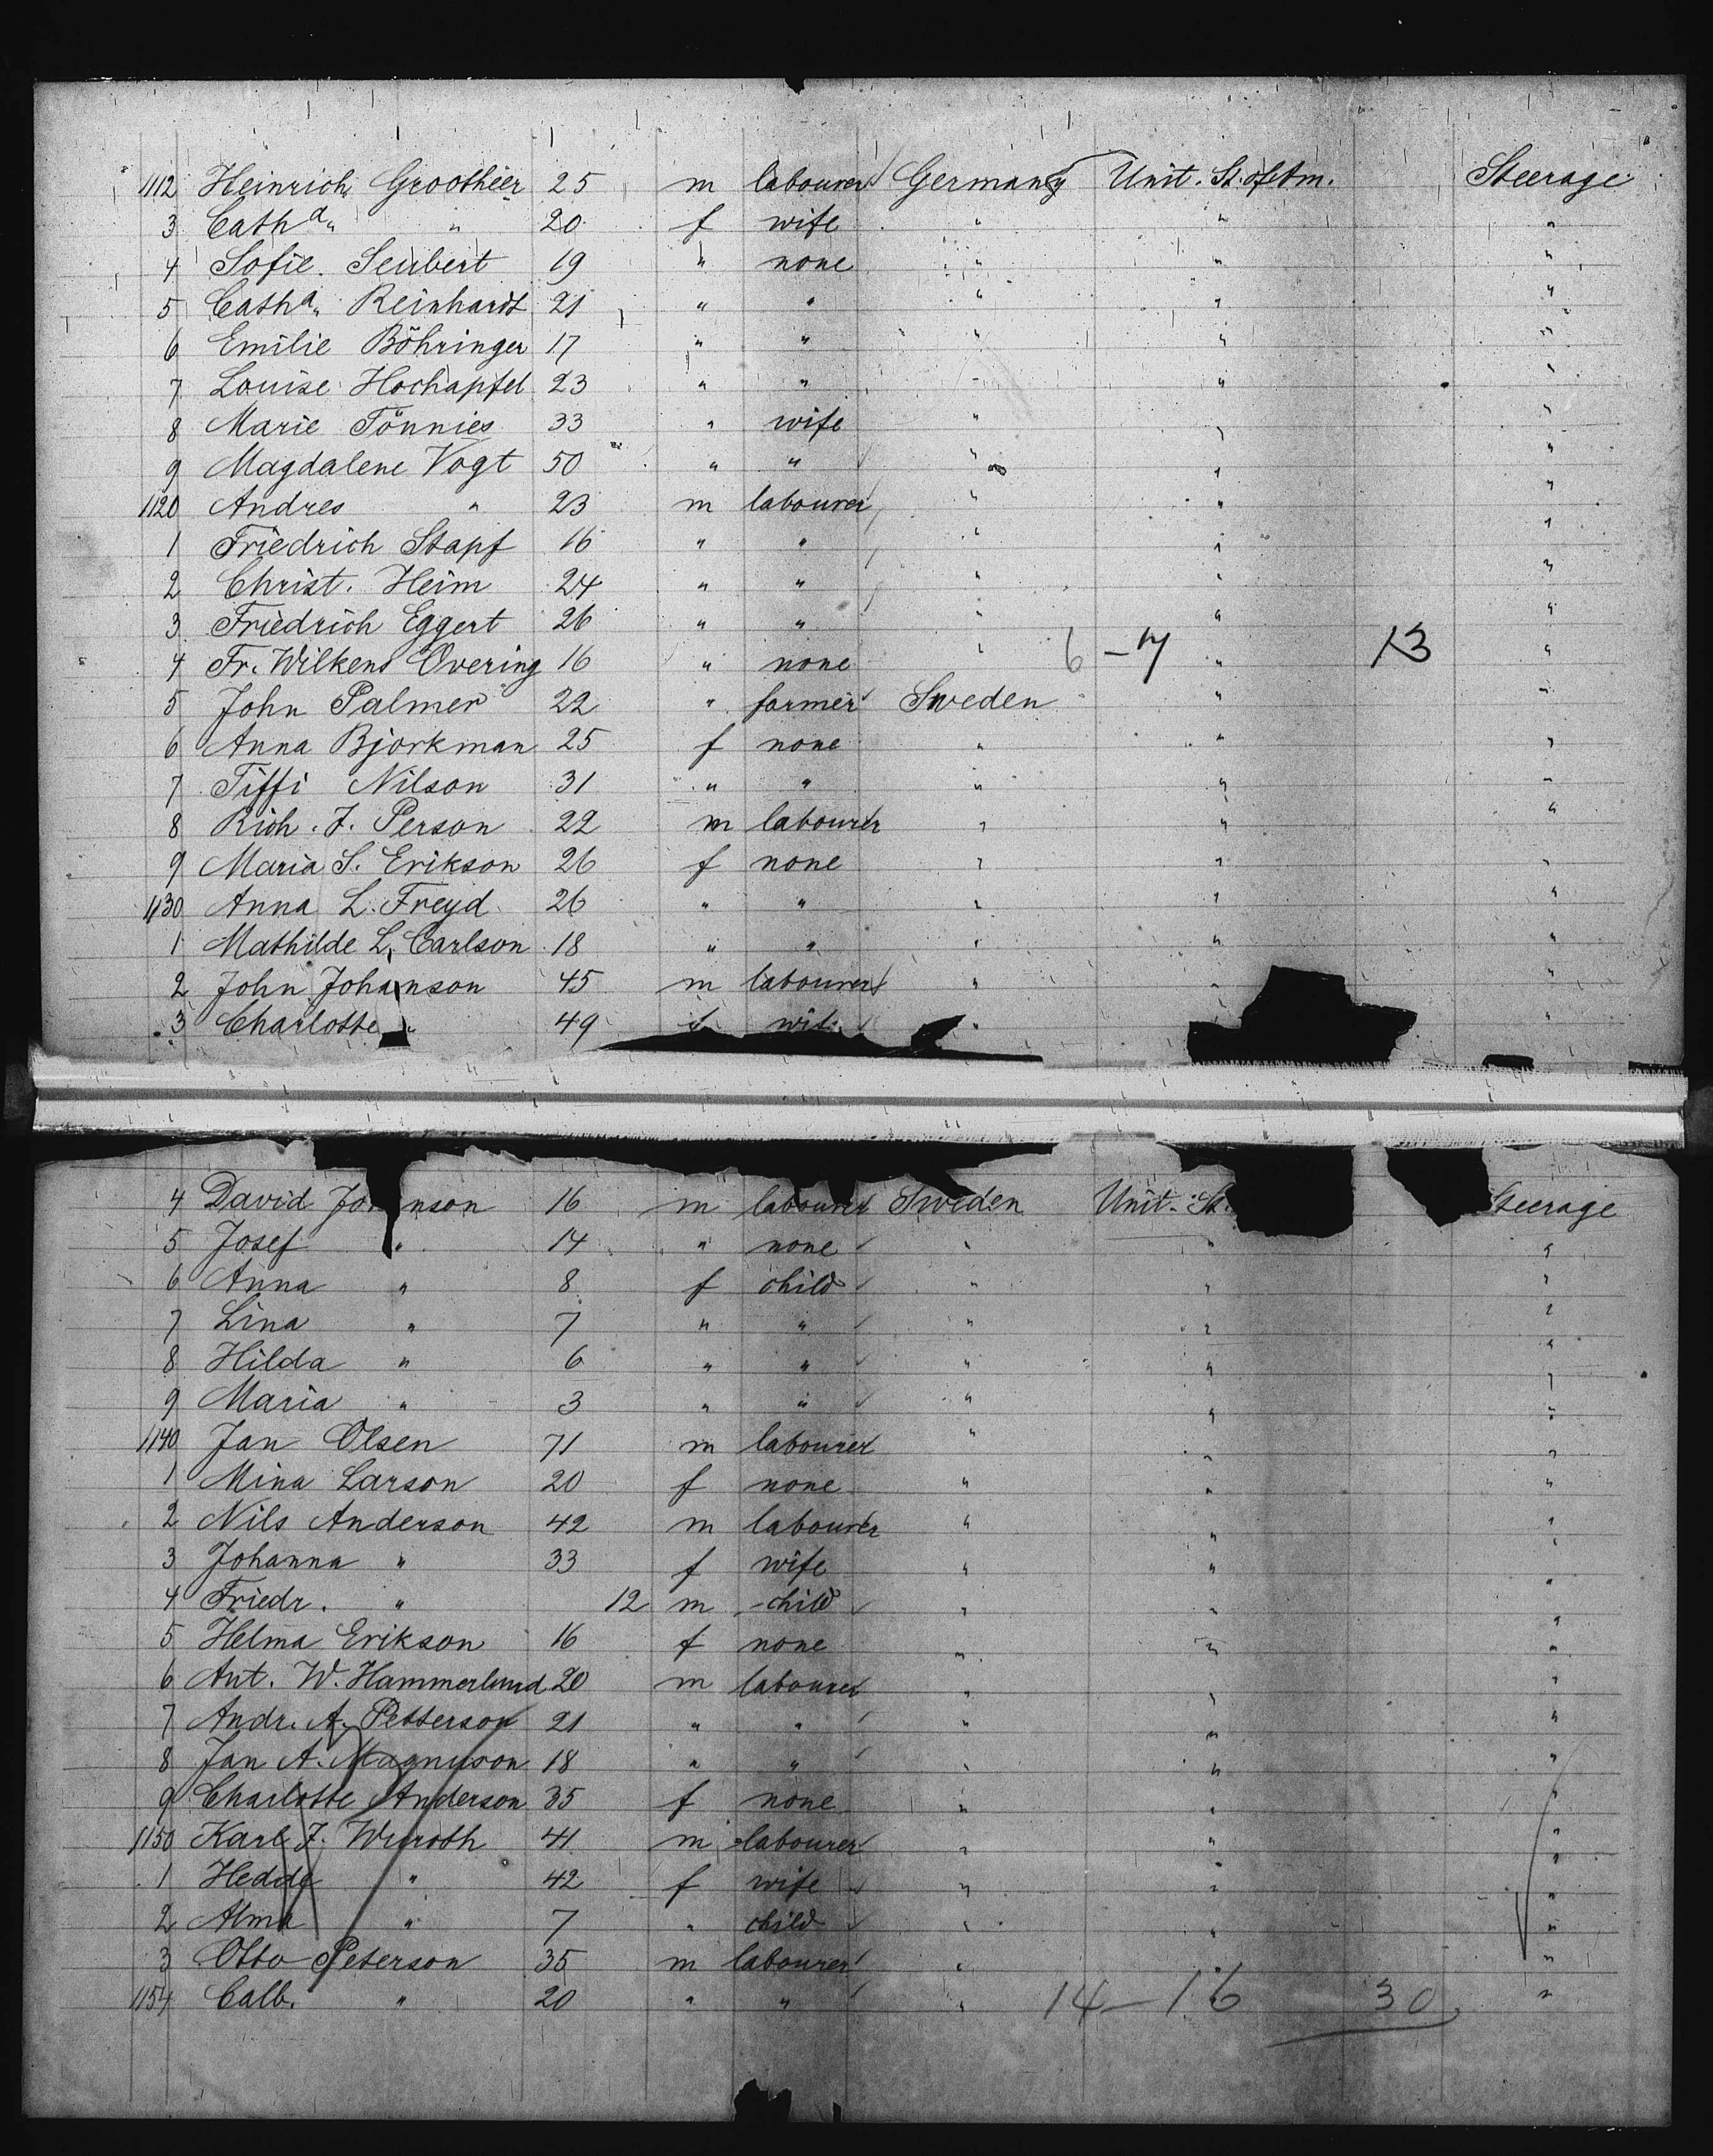 1112 Heinrich Grootheer 25 m labourer Germany Unit. St. of Am. Steerage
3 Catha. " 20 f wife " " "
4 Sofie Seubert 19 " none " " "
5 Catha. Reinhardt 21 " " " " "
6 Emilie Böhringer 17 " " " " "
7 Louise Hochapfel 23 " " " " "
8 Marie Tönnies 33 " wife " " "
9 Magdalene Vogt 50 " " " " "
1120 Andres " 23 m labourer " " "
1 Friedrich Stapf 16 " " " " "
2 Christ. Heim 24 " " " " "
3 Friedrich Eggert 26 " " " " "
4 Fr. Wilkens Overing 16 " none " 6 – 7 " 13 "
5 John Palmer 22 " farmer Sweden " "
6 Anna Bjorkman 25 f none " " "
7 Tiffi Nilson 31 " " " " "
8 Rich. J. Person 22 m labourer " " "
9 Maria S. Erikson 26 f none " " "
1130 Anna L. Freyd 26 " " " " "
1 Mathilde L. Carlson 18 " " " " "
2 John Johanson 45 m labourer " " "
3 Charlotte " 49 f wife " "
4 David Johanson 16 m labourer Sweden Unit. St. Steerage
5 Josef " 14 " none " " "
6 Anna " 8 f child " " "
7 Lina " 7 " " " " "
8 Hilda " 6 " " " " "
9 Maria " 3 " " " " "
1140 Jan Olsen 71 m labourer " " "
1 Mina Larson 20 f none " " "
2 Nils Anderson 42 m labourer " " "
3 Johanna " 33 f wife " " "
4 Friedr. " 12 m child " " "
5 Helma Erikson 16 f none " " "
6 Ant. W. Hammerlund 20 m labourer " " "
7 Andr. A. Petterson 21 " " " " "
8 Jan A. Magnuson 18 " " " " "
9 Charlotte Anderson 35 f none " " "
1150 Karl J. Wuroth 41 m labourer " " "
1 Hedda " 42 f wife " " "
2 Alma " 7 " child " " "
3 Otto Peterson 35 m labourer " " "
1154 Calb. " 20 " " " 14 – 16 30 "